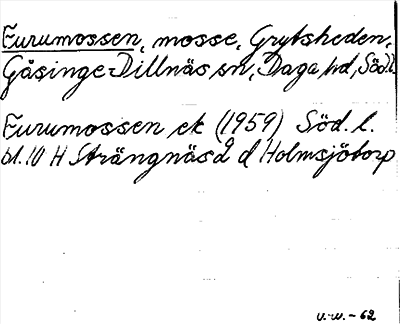 Furumossen, mosse, Grytsheden,
Gåsinge-Dillnäs sn, Daga hd, Söd.l.
Furumossen ek (1959) Söd. l.
bl. 10 H Strängnäs 2 d Holmsjötorp
V.-W. - 62